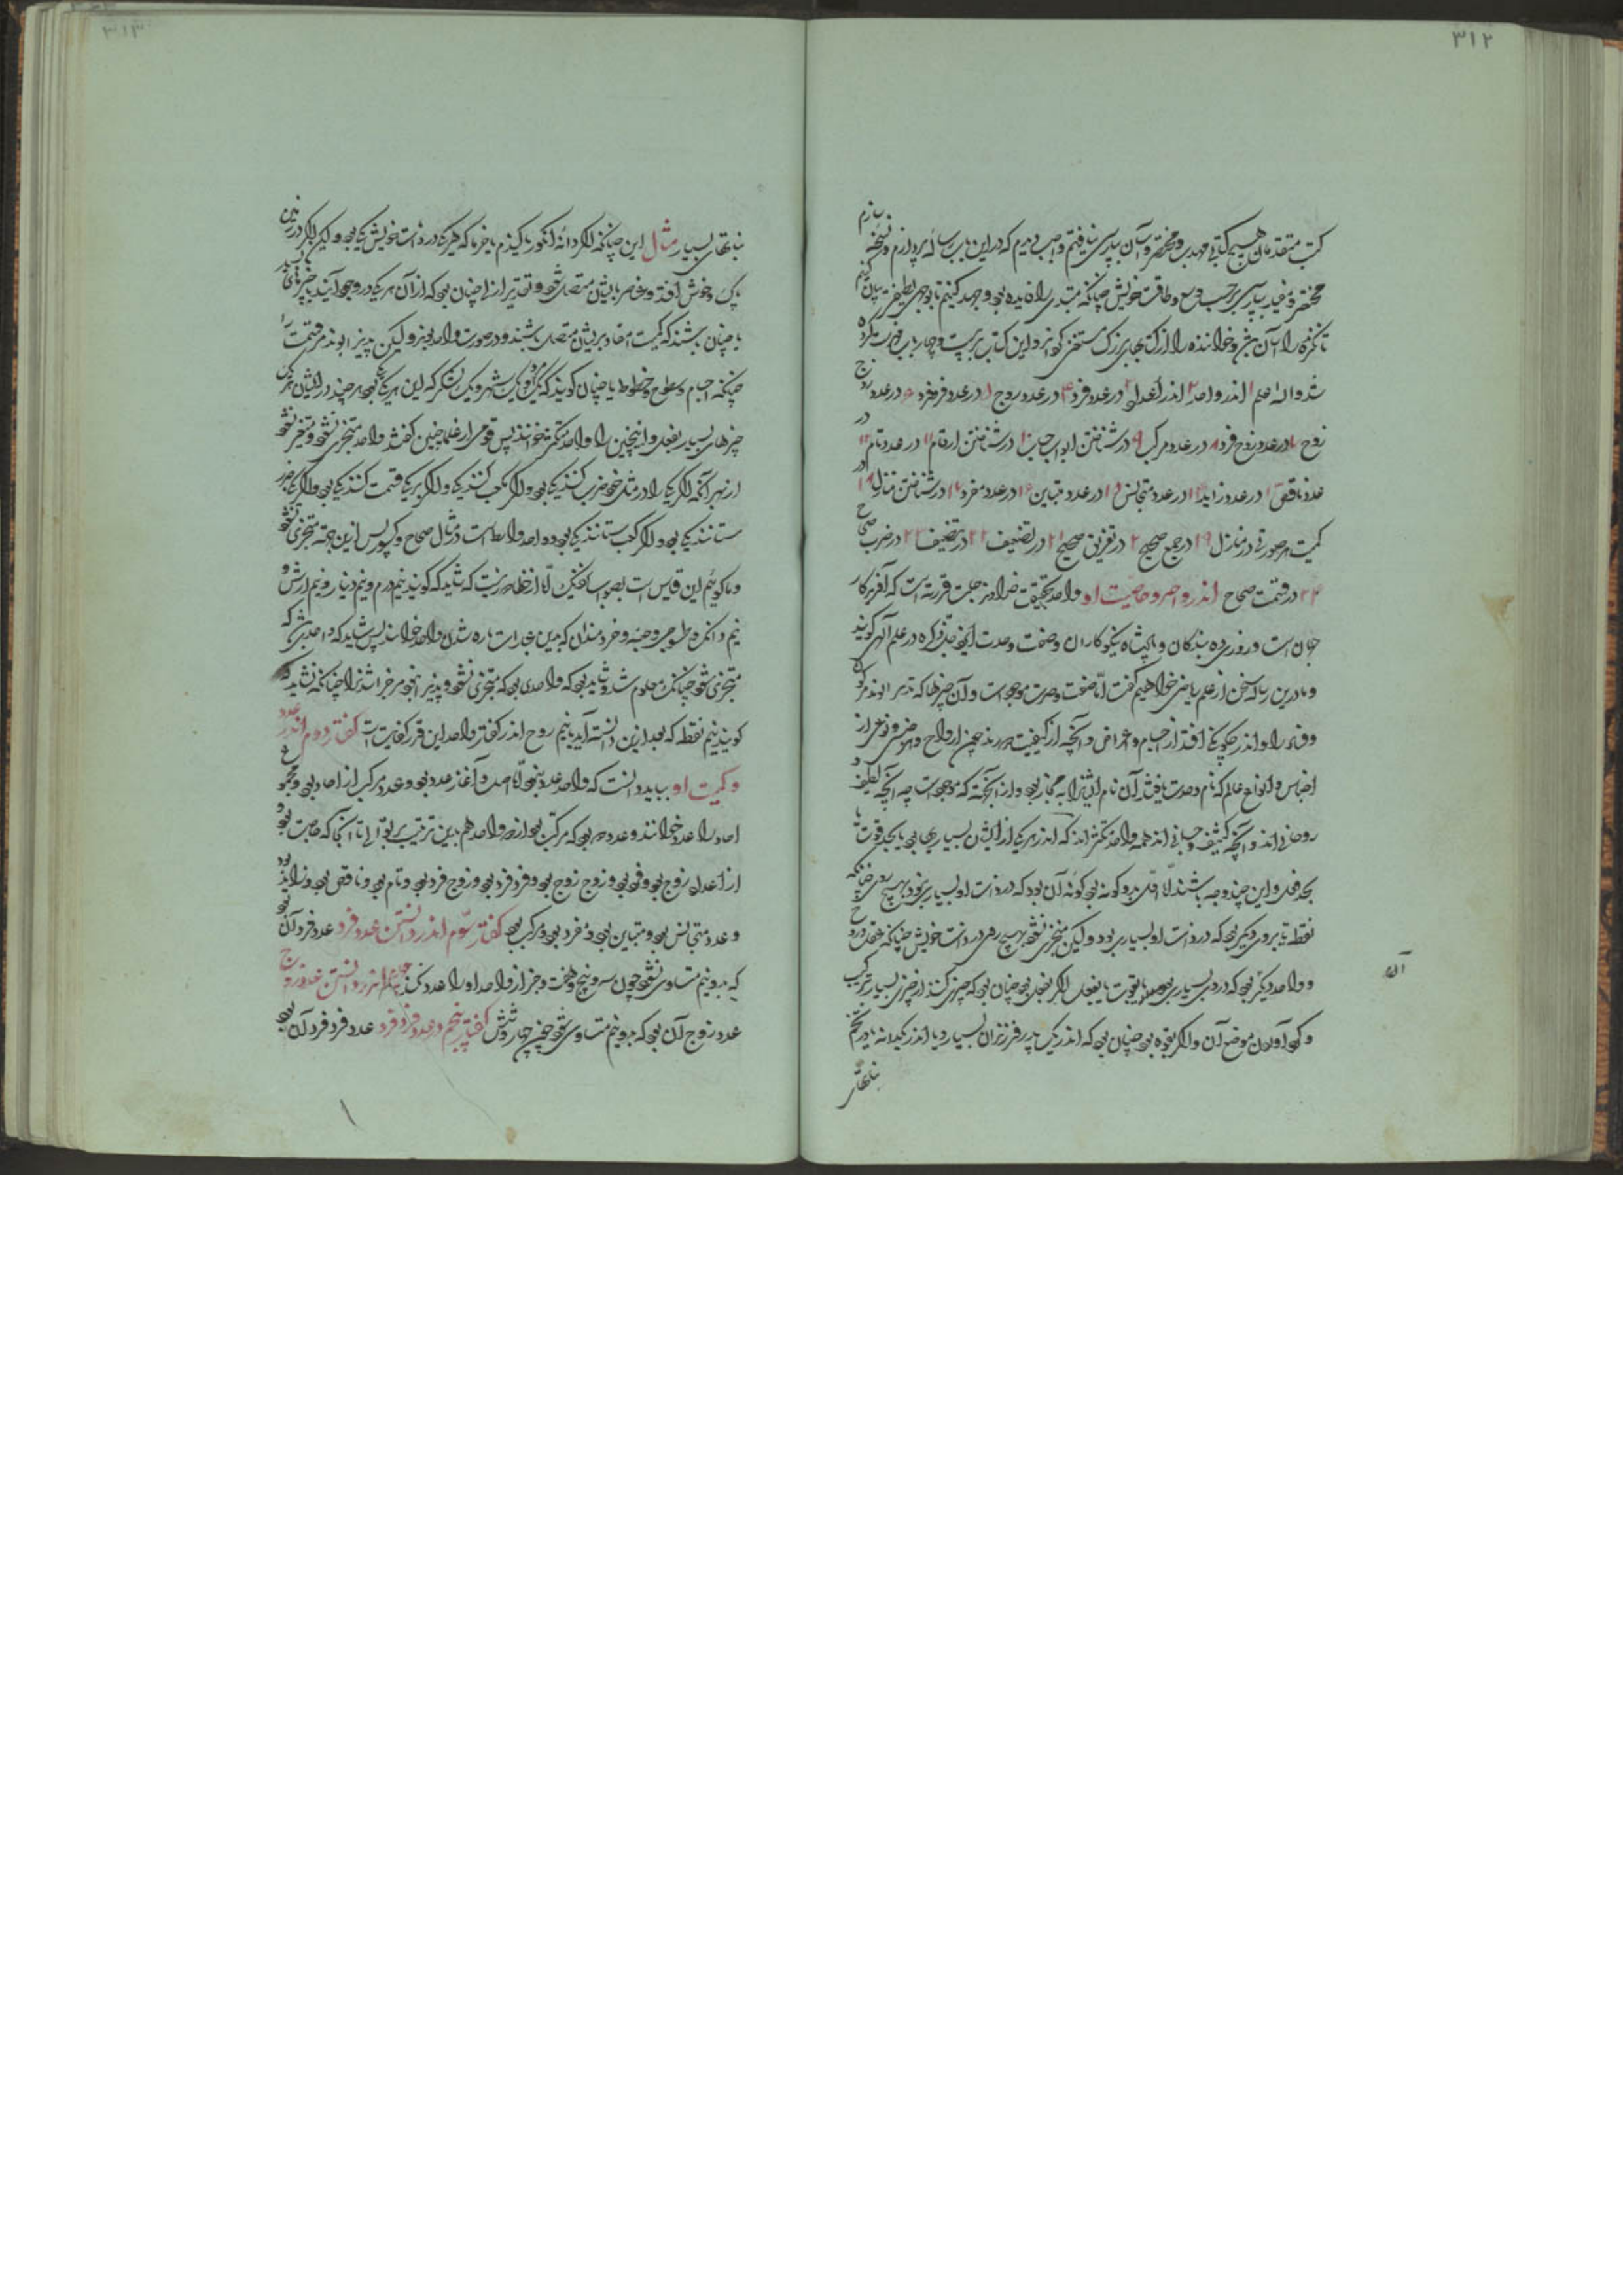 ۳۱۲
کتب متقدمان هیچ کتابی مهذب و مختصر و آسان بپارسی نیافتم واجب دیدم که در این باب رساله پردازم و نسخه سازم
مختصر و مفید بپارسی برحسب وسع و طاقت خویش چنانکه مبتدی را فایده بود و جهد کنیم تا بوجهی لطیف‌تر بیان کنیم
تا نگرنده را آسان بود و خواننده را از کتابهای بزرگ مستغنی گرداند و این کتاب بر بیست و چهار باب فهرست کرده
شد والله اعلم ۱ اندر واحد ۲ اندر اعداد ۳ در عدد فرد ۴ در عدد زوج ۵ در عدد فرد فرد ۶ در عدد زوج
زوج ۷ در عدد زوج فرد ۸ در عدد مرکب ۹ در شناختن ابواب حساب ۱۰ در شناختن ارقام ۱۱ در عدد تام ۱۲ در
عدد ناقص ۱۳ در عدد زاید ۱۴ در عدد متجانس ۱۵ در عدد متباین ۱۶ در عدد مفرد ۱۷ در شناختن منازل ۱۸ اندر
کمیت هر صورتی در منازل ۱۹ در جمع صحیح ۲۰ در تفریق صحیح ۲۱ در تضعیف ۲۲ در تنصیف ۲۳ در ضرب صحاح
۲۴ در قسمت صحاح اندر واحد و خاصیت او واحد بتحقیق خداوند جلت قدرته است که آفریدگار
جهان است و روزی ده بندگان و پادشاه نیکوکاران و صفت وحدت در علم الهی گویند
و ما درین رساله سخن از علم ریاضی خواهیم گفت اما صفت وحدت موجود است و آن چیزها که
و فنا را و اندر چگونگی افتد از اجسام و اعراض و آنچه از کیفیت چون ارواح و نوعی از
اجناس و انواع عالم که نام وحدت یافتند آن نام ایشانرا به مجاز بود و از آنکه که موجود است چه آنچه لطیف و
روحانی‌اند و آنچه کثیف و جسمانی‌اند همه واحد متکثراند که اندر هر یکی از ایشان بسیاری بود یا بحد قوت یا
بحد فعل و این چند وجه باشند اما اول بدو گونه بود یک گونه آن بود که در ذات او بسیاری نبود بهیچ روی چنانکه
نقطه یا بروی دیگر بود که در ذات او بسیاری بود ولیکن متجزی نشود بهیچ روی در ذات خویش چنانکه عقل و روح
و واحد دیگر بود که در وی بسیاری بود یا بقوت یا بفعل اگر بفعل بود چنان بود که چیزی کنند از چیزی بسیار ترکیب
و گرد آوردن موضع آن و اگر بقوه بود چنان بود که اندر یک پدر فرزندان بسیار و یا اندر یکدانه یا در تخم
نباتهای
۳۱۳
نباتهای بسیار مثال این چنانکه اگر دانه انگور یا گندم یا خرما که هر یک در ذات خویش یکی بود ولیکن اگر در زمین
پاک و خوش افتد و عناصر بایشان متصل شود و تقدیر ازلی چنان بود که از آن هر یک در وجود آید چیزهای بسیار
یا چنان باشند که کمیت آحاد بر ایشان متصل باشند و در صورت واحد بوند ولیکن پذیر ابوند مر قسمت را
چنانکه اجسام و سطوح و خطوط یا چنان گویند که یک مرد و یک شهر و یک لشکر که این هر یک یکی بود هر چند در ایشان
چیزهای بسیار بفعل و اینچنین را واحد متکثر خوانند پس قومی از علما چنین گفتند واحد متجزی نشود و متغیر نشود
از بهر آنکه اگر یک را در مثل خود ضرب کنند یک بود و اگر مکعب کنند یک و اگر بر یک قسمت کنند یک بود و اگر یک را جذر
ستانند یک بود و اگر کعب ستانند یک بود و واحد واسطه است در مثال صحاح و کسور پس ازین جهة متجزی نشود
و ما گوئیم این قیاس است بصواب نزدیک اما از ظاهر نیست که شاید که گویند نیم درم و نیم دینار و نیم ارش و
نیم دانگ و طسوجی و حبه و خردمندان که بدین عبارات یاره شدن واحد خواستند پس شاید که واحدی باشد که
متجزی شود چنانک معلوم شد و شاید بود که واحدی بود که متجزی نشود و پذیر ابود مر خراشیدن را چنانکه نشاید که
گویند نیم نقطه که بعد ازین دانسته آید یا نیم روح اندر گفتار واحد این قدر کفایت است گفتار دوم اندر عدد
و کمیت او بباید دانست که واحد عدد نبود اما اصل و آغاز عدد بود و عدد مرکب از آحاد بود و مجموع
آحاد را عدد خوانند و عدد دو بود که مرکب بود از دو واحد هم بدین ترتیب بر توالی تا آنجا که حاجت بود
از اعداد زوج بود و فرد بود و زوج زوج بود و فرد فرد بود و زوج فرد بود و تام بود و ناقص بود و زاید بود
و عدد متجانس بود و متباین بود و مفرد بود و مرکب بود گفتار سوم اندر دانستن عدد فرد عدد فرد آن بود
که بدو نیم متساوی نشود چون سه و پنج و هفت و جز از واحد او را عدد نکند چهارم اندر دانستن عدد زوج
عدد زوج آن بود که بدو نیم متساوی شود چون چهار و شش گفتار پنجم در عدد فرد فرد عدد فرد فرد آن بود